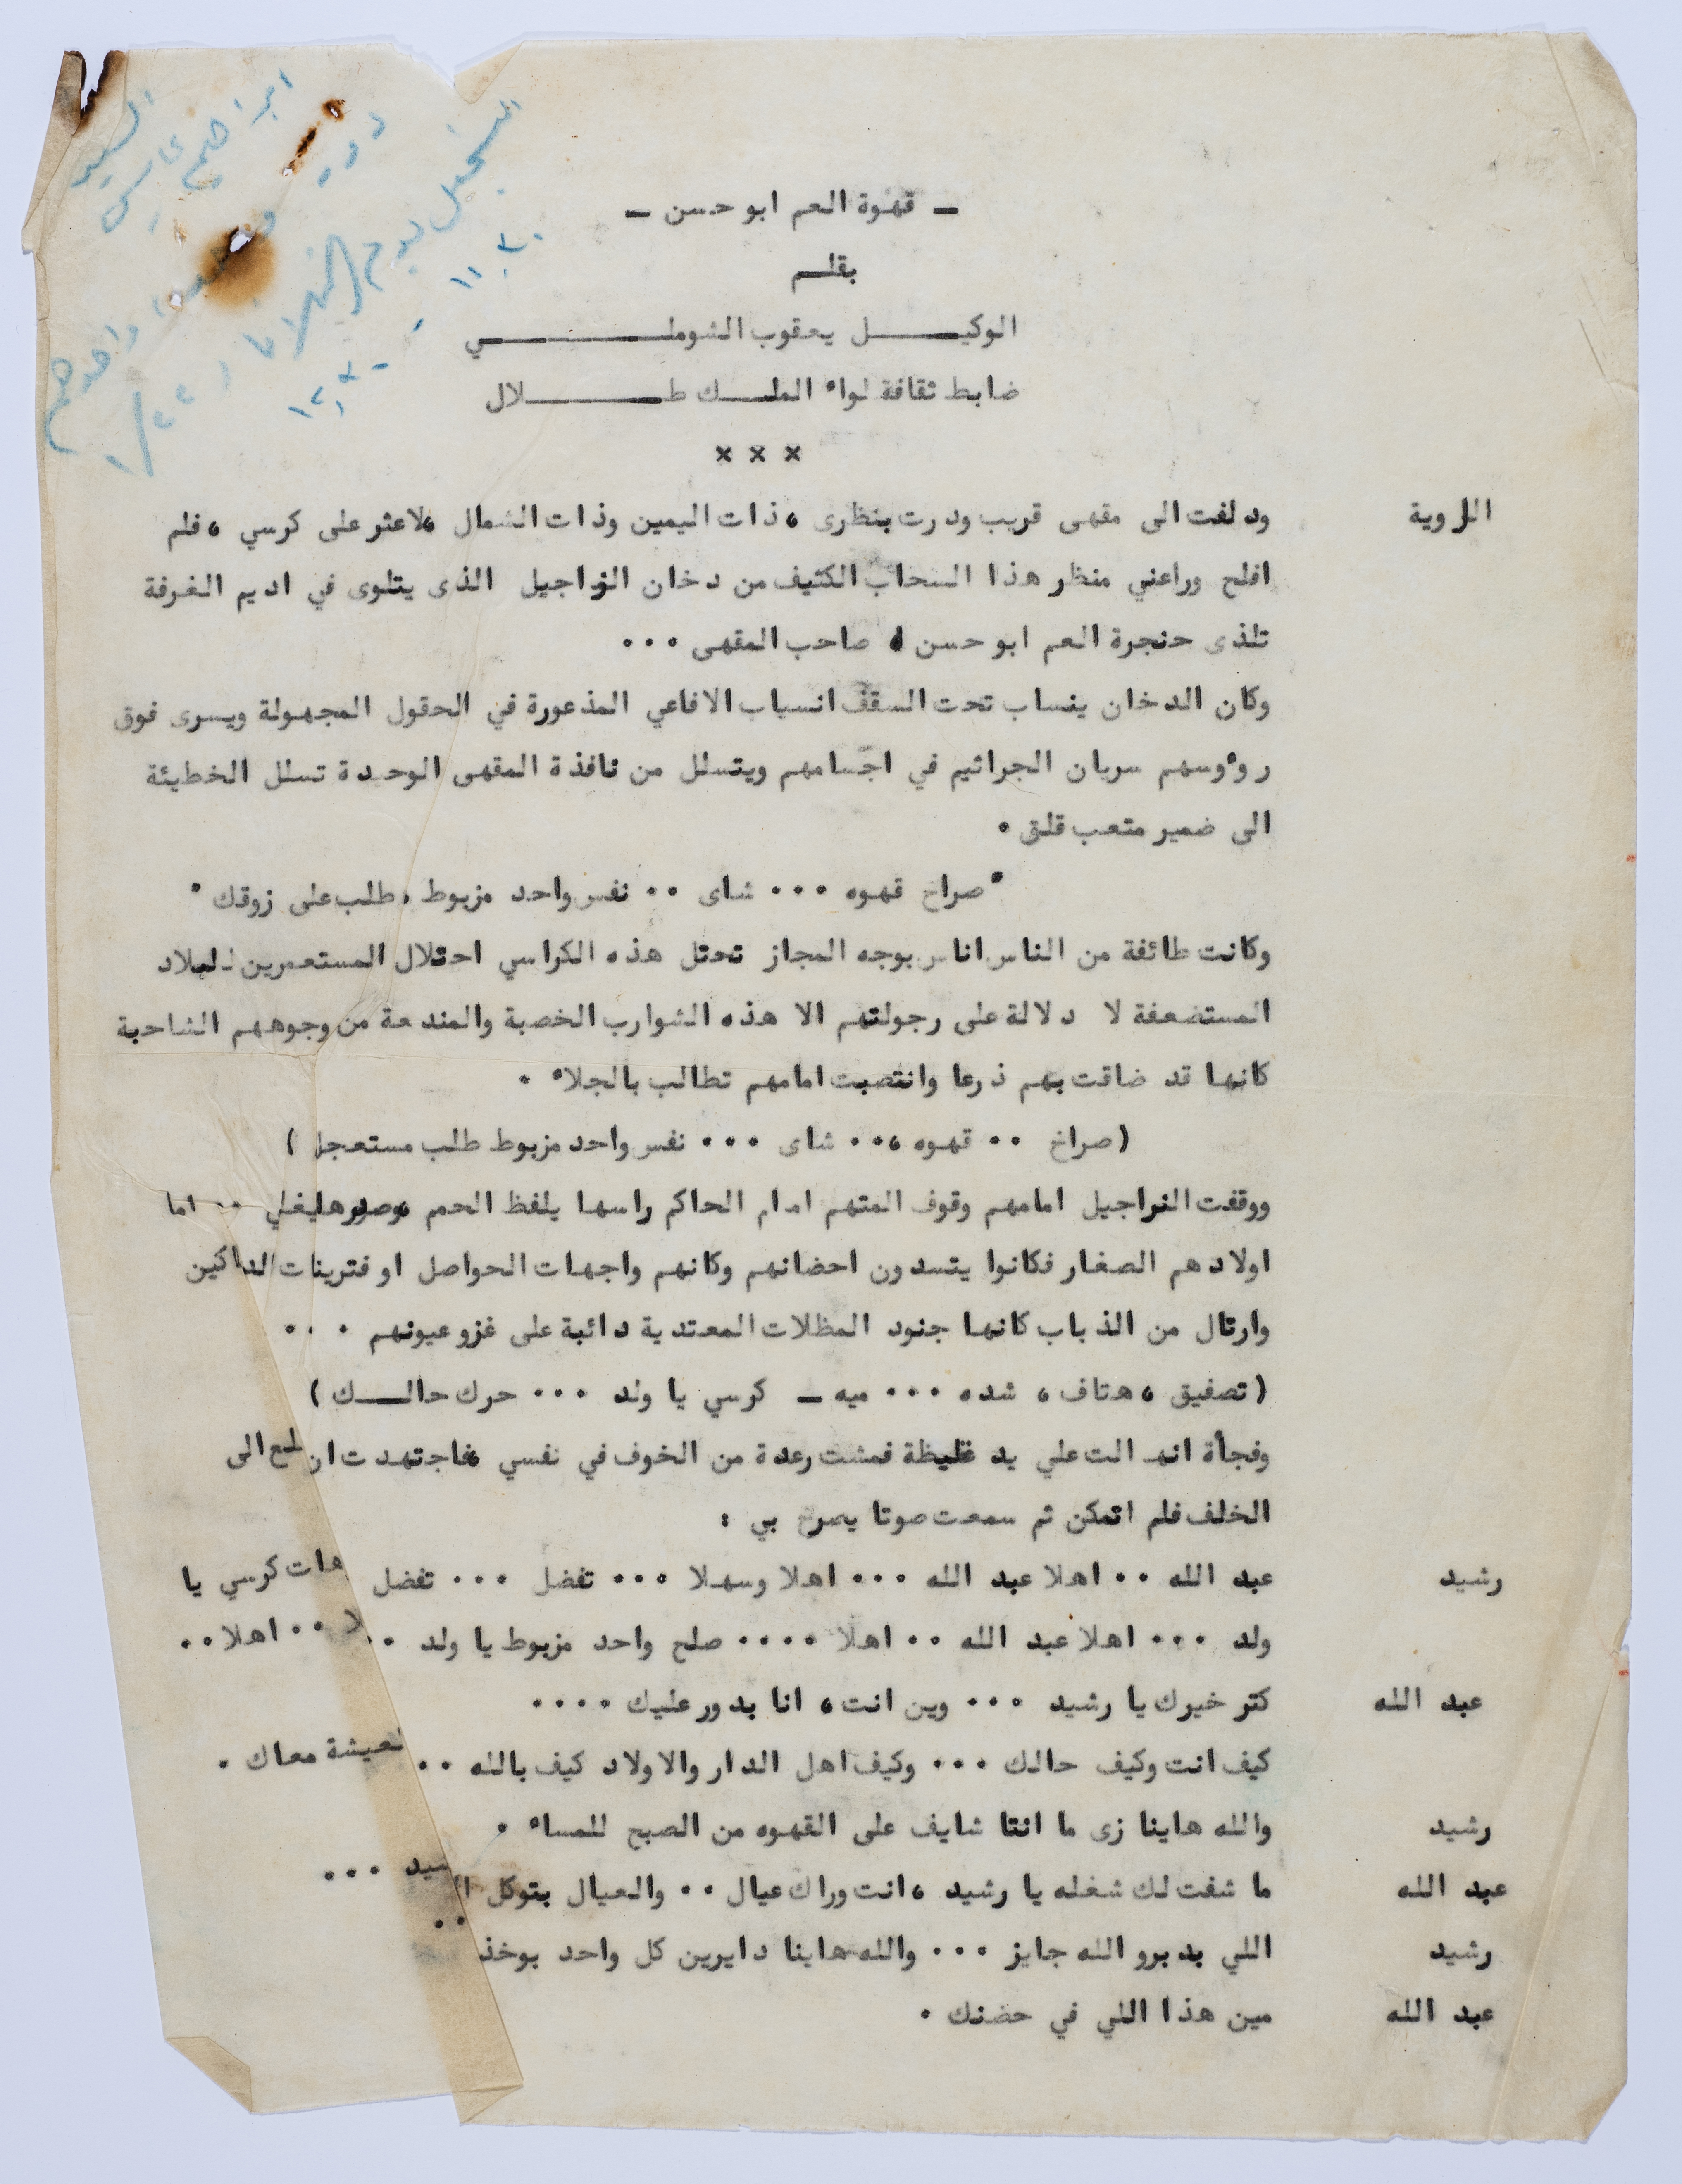 السيد
ابراهيم
دوره
واحدهم
التسجيل يوم الثلاثاء
١/٢٢
١١,٣٠ - ١٢,٣٠
ـ قهوة العم ابو حسن ـ
بقلـــم
الوكيــــــل يعقوب الشوملــــــــــــي
ضابط ثقافة لواء الملـــك طــــــــلال
× × ×
الراوية ودلفت الى مقهى قريب ودرت بنظرى ، ذات اليمين وذات الشمال ،لاعثر على كرسي ، فلم
افلح وراعني منظر هذا السحاب الكثيف من دخان النراجيل الذى يتلوى في اديم الغرفة
تلذى حنجرة العم ابو حسن صاحب المقهى ٠٠٠
وكان الدخان ينساب تحت السقف انسياب الافاعي المذعورة في الحقول المجهولة ويسرى فوق
روءوسهم سريان الجراثيم في اجسامهم ويتسلل من نافذة المقهى الوحدة تسلل الخطيئة
الى ضمير متعب قلق ٠
"صراخ قهوه ٠٠٠ شاى ٠٠ نفس واحد مزبوط ، طلب على زوقك "
وكانت طائفة من الناس اناس بوجه المجاز تحتل هذه الكراسي احتلال المستعمرين للبلاد
المستضعفة لا دلالة على رجولتهم الا هذه الشوارب الخصبة والمندعة من وجوههم الشاحبة
كانها قد ضاقت بهم ذرعا وانتصبت امامهم تطالب بالجلاء ٠
(صراخ ٠٠ قهوه ،٠٠ شاى ٠٠٠ نفس واحد مزبوط طلب مستعجل )
ووقفت النراجيل امامهم وقوف المتهم امام الحاكم راسها يلفظ الحمم ،وصدرها يغلي ٠٠ اما
اولادهم الصغار فكانوا يتسدون احضانهم وكانهم واجهات الحواصل او فترينات الداكين
وارتال من الذباب كانها جنود المظلات المعتدية دائبة على غزو عيونهم ٠٠٠
(تصفيق ، هتاف ، شده ٠٠٠ ميه ـ كرسي يا ولد ٠٠٠ حرك حالـــك )
وفجأة انهالت علي يد غليظة فمشت رعدة من الخوف في نفسي ،فاجتهدت ان لمح الى
الخلف فلم اتمكن ثم سمعت صوتا يصرخ بي :
رشيد عبد الله ٠٠ اهلا عبد الله ٠٠٠ اهلا وسهلا ٠٠٠ تفضل ٠٠٠ تفضل هات كرسي يا
ولد ٠٠٠ اهلا عبد الله ٠٠ اهلا ٠٠٠٠ صلح واحد مزبوط يا ولد ٠٠ لا ٠٠ اهلا ٠٠
عبد الله كتر خيرك يا رشيد ٠٠٠ وين انت ، انا بدور عليك ٠٠٠٠
كيف انت وكيف حالك ٠٠٠ وكيف اهل الدار والاولاد كيف بالله ٠٠ لعيشة معاك ٠
رشيد والله هاينا زى ما انتا شايف على القهوه من الصبح للمساء ٠
عبد الله ما شفت لك شغله يا رشيد ، انت وراك عيال ٠٠ والعيال بتوكل ا شيد ٠٠٠
رشيد اللي بدبرو الله جايز ٠٠٠ والله هاينا دايرين كل واحد بوخذ ٠٠
عبد الله مين هذا اللي في حضنك ٠